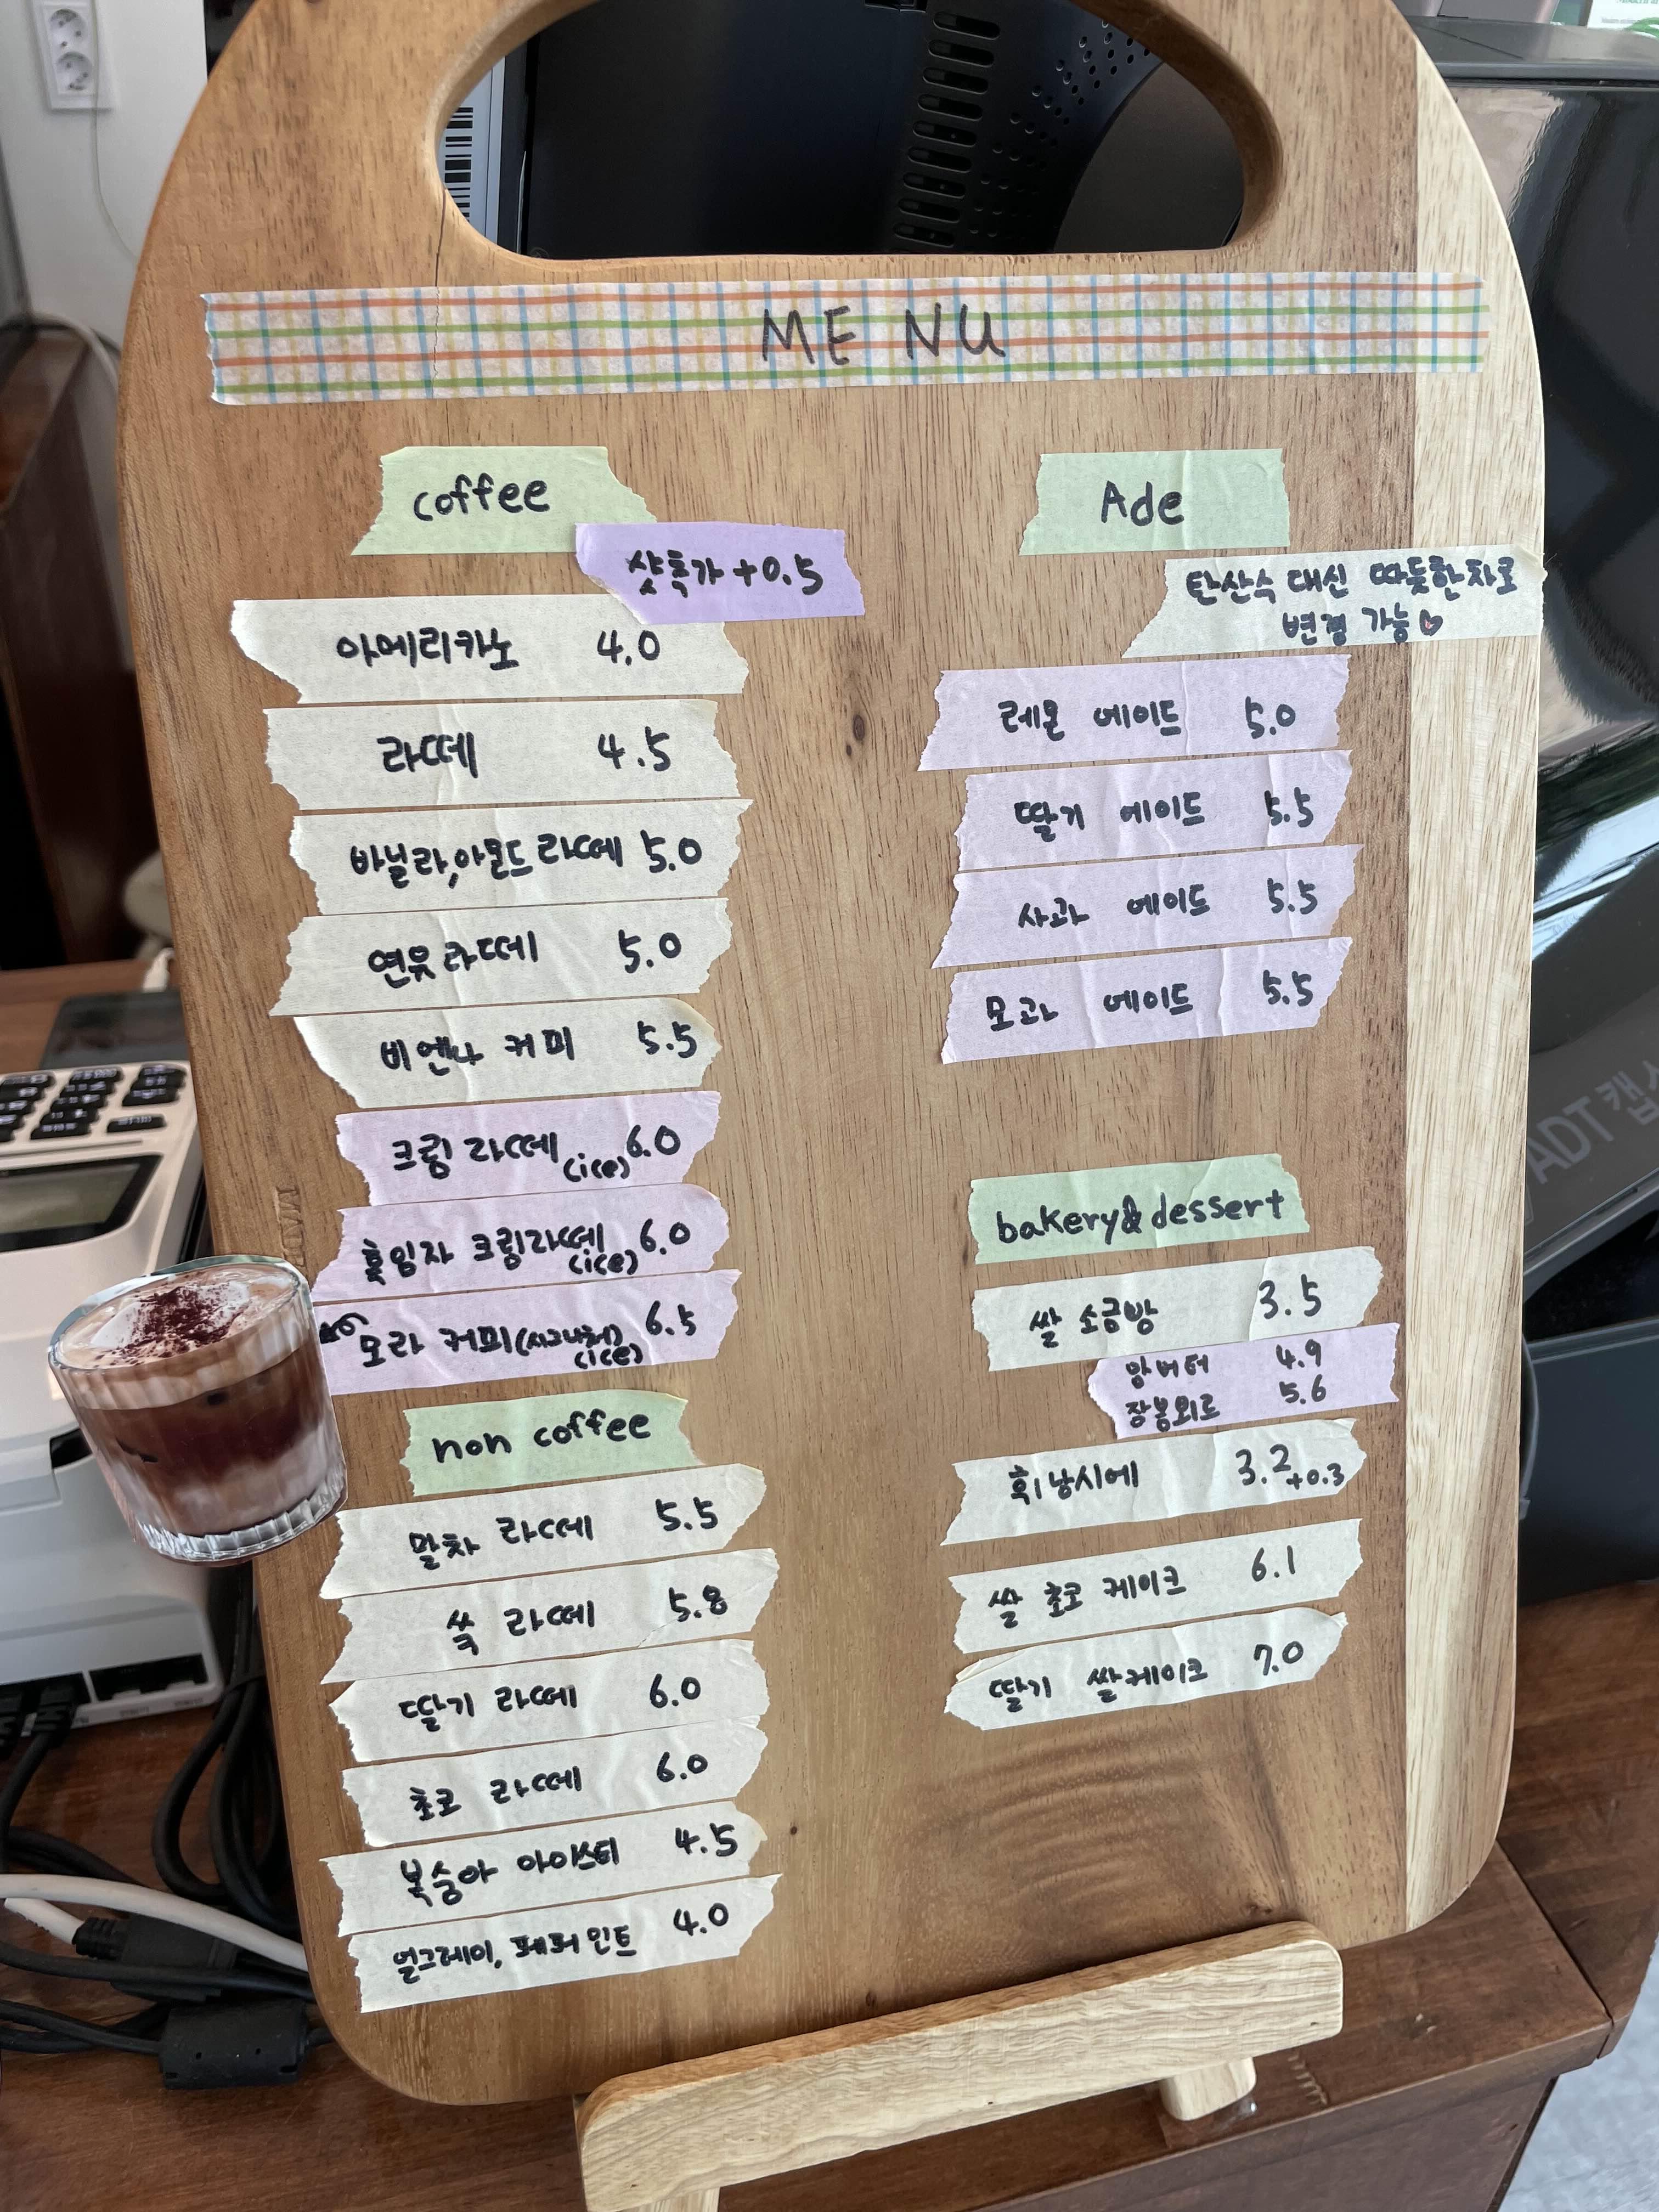 MENU
coffee
샷추가 +0.5
아메리카노 4.0
라떼 4.5
바닐라,아몬드 라떼 5.0
연유라떼 5.0
비엔나 커피 5.5
크림 라떼 (ice) 6.0
흑임자 크림라떼 (ice) 6.0
모라 커피(시그니처) (ice) 6.5
non coffee
말차 라떼 5.5
쑥 라떼 5.8
딸기 라떼 6.0
초코 라떼 6.0
복숭아 아이스티 4.5
얼그레이, 페퍼민트 4.0
Ade
탄산수 대신 따뜻한차로
변경 가능♡
레몬 에이드 5.0
딸기 에이드 5.5
사과 에이드 5.5
모과 에이드 5.5
bakery&dessert
쌀 소금빵 3.5
앙버터 4.9
잠봉뵈르 5.6
휘낭시에 3.2 +0.3
쌀 초코 케이크 6.1
딸기 쌀케이크 7.0
ADT 캡